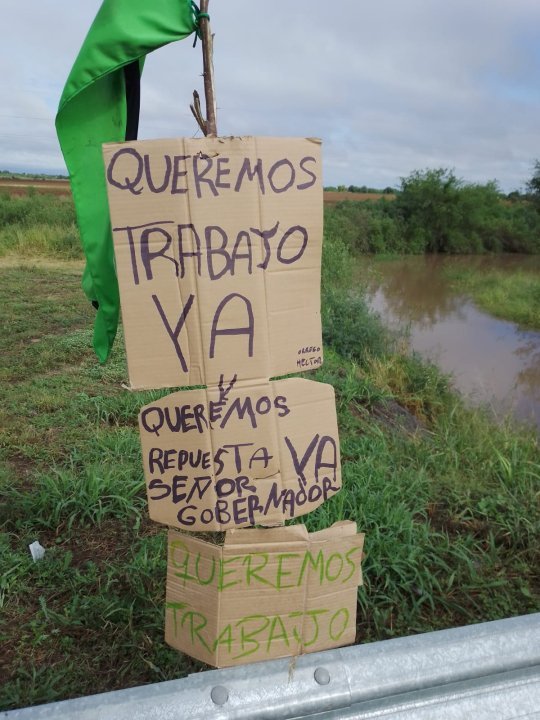 QUEREMOS
TRABAJO
YA
OBREGO
HECTOR
Y
QUEREMOS
REPUESTA YA
SEÑOR
GOBERNADOR
QUEREMOS
TRABAJO